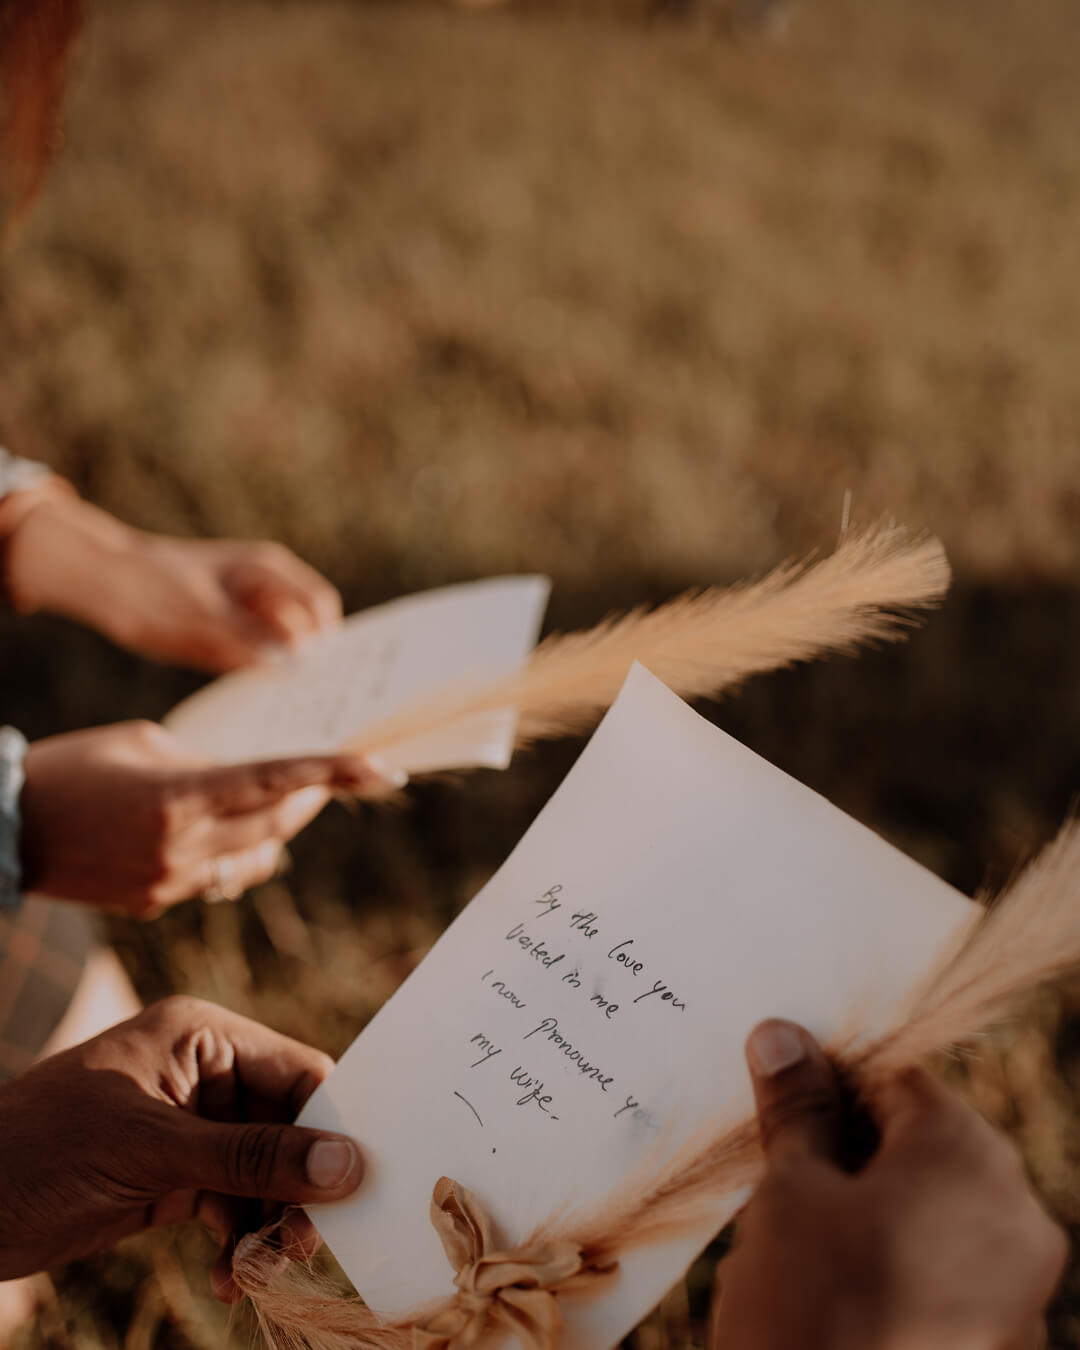 By the love you
vested in me
I now pronounce you
my wife.